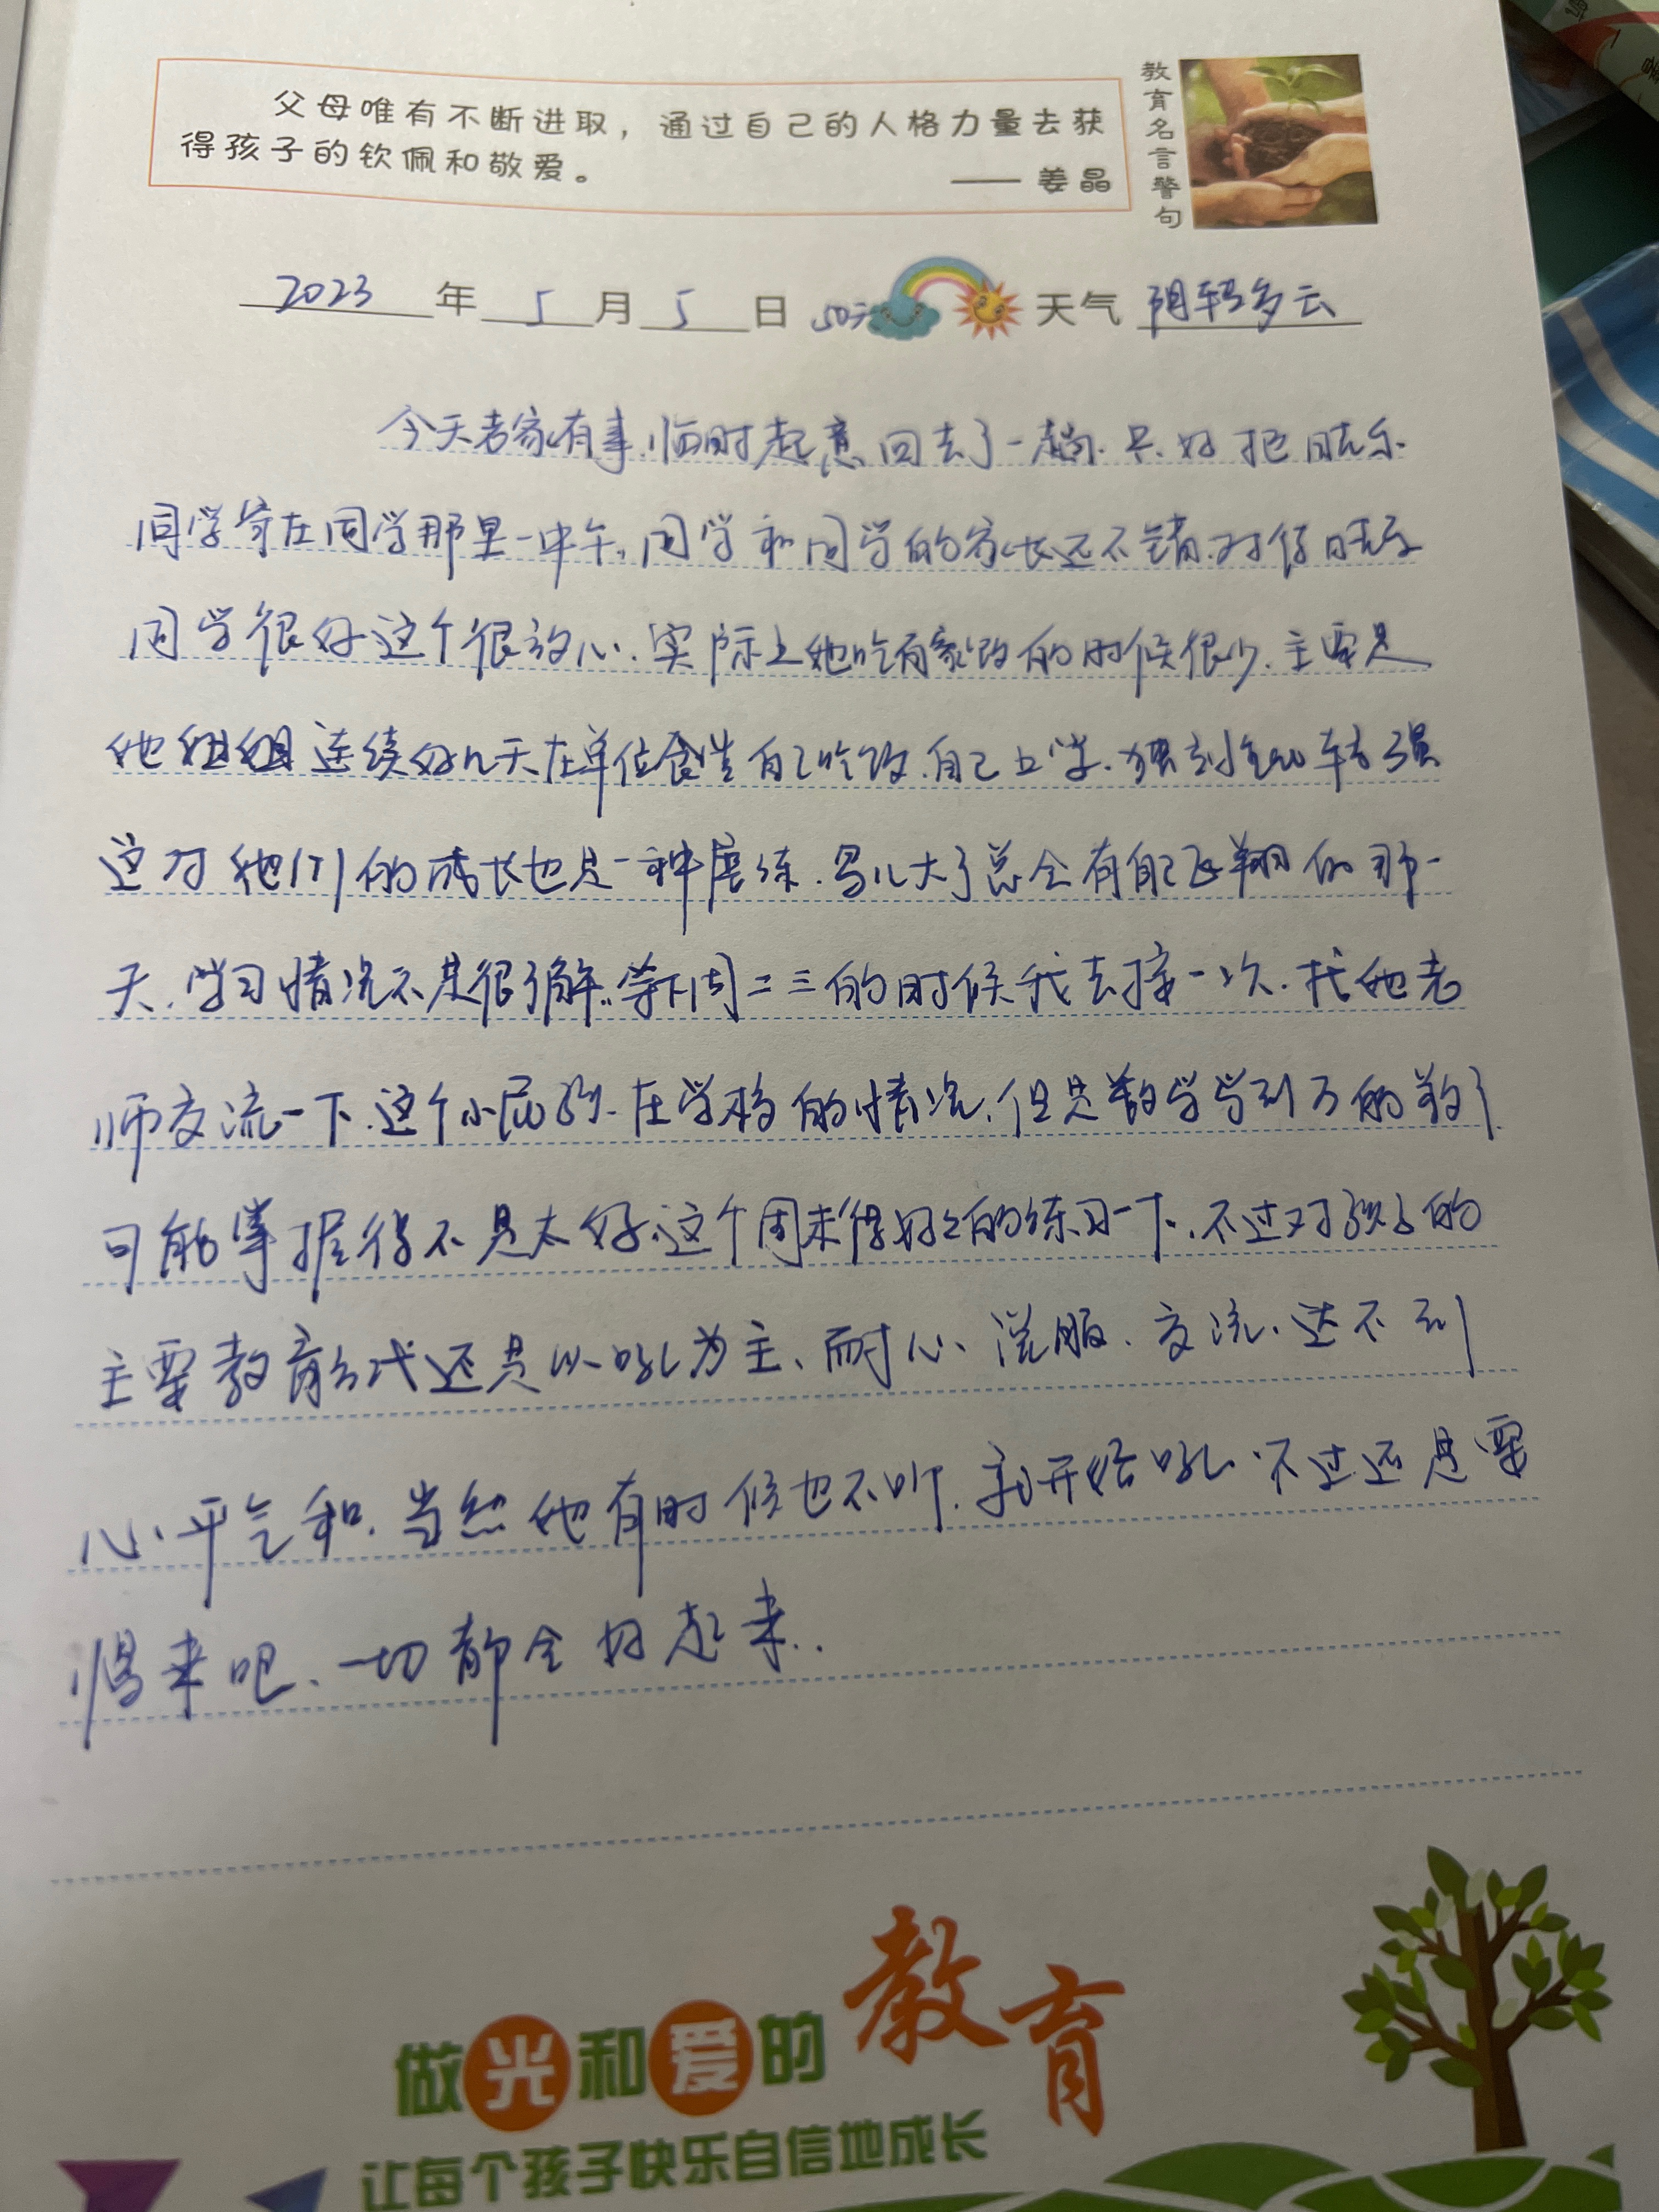 父母唯有不断进取，通过自己的人格力量去获
得孩子的钦佩和敬爱。
—— 姜晶
教育名言警句
2023年5月5日 50天 天气 阴转多云
今天老家有事.临时起意回去了一趟.只好把晓乐
同学寄在同学那里一中午,同学和同学的家长还不错.对待晓乐
同学很好这个很放心.实际上她吃百家饭的时候很少.主要是
她姐姐连续好几天在单位食堂自己吃饭.自己上学.独立性较强
这对她们的成长也是一种磨练.鸟儿大了总会有自己飞翔的那一
天.学习情况不是很了解.等下周二三的时候我去接一次.找她老
师交流一下.这个小屁孩.在学校的情况.但是数学学到万的数了
可能掌握得不是太好.这个周末得好好的练习一下.不过对孩子的
主要教育方式还是以吼为主、耐心、说服.交流.达不到
心平气和.当然她有时候也不听.就开始吼.不过还是要
慢来吧、一切都会好起来..
做光和爱的教育
让每个孩子快乐自信地成长